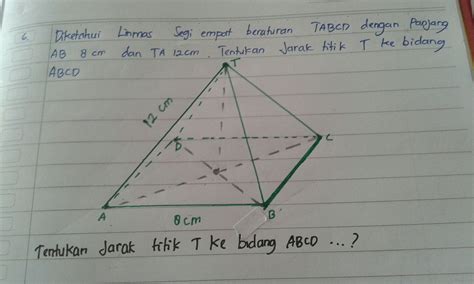 6. Diketahui Limas Segi empat beraturan TABCD dengan Panjang
AB 8 cm dan TA 12 cm. Tentukan Jarak titik T ke bidang
ABCD
T
12 cm
D
C
A
8 cm
B
Tentukan Jarak titik T ke bidang ABCD ...?